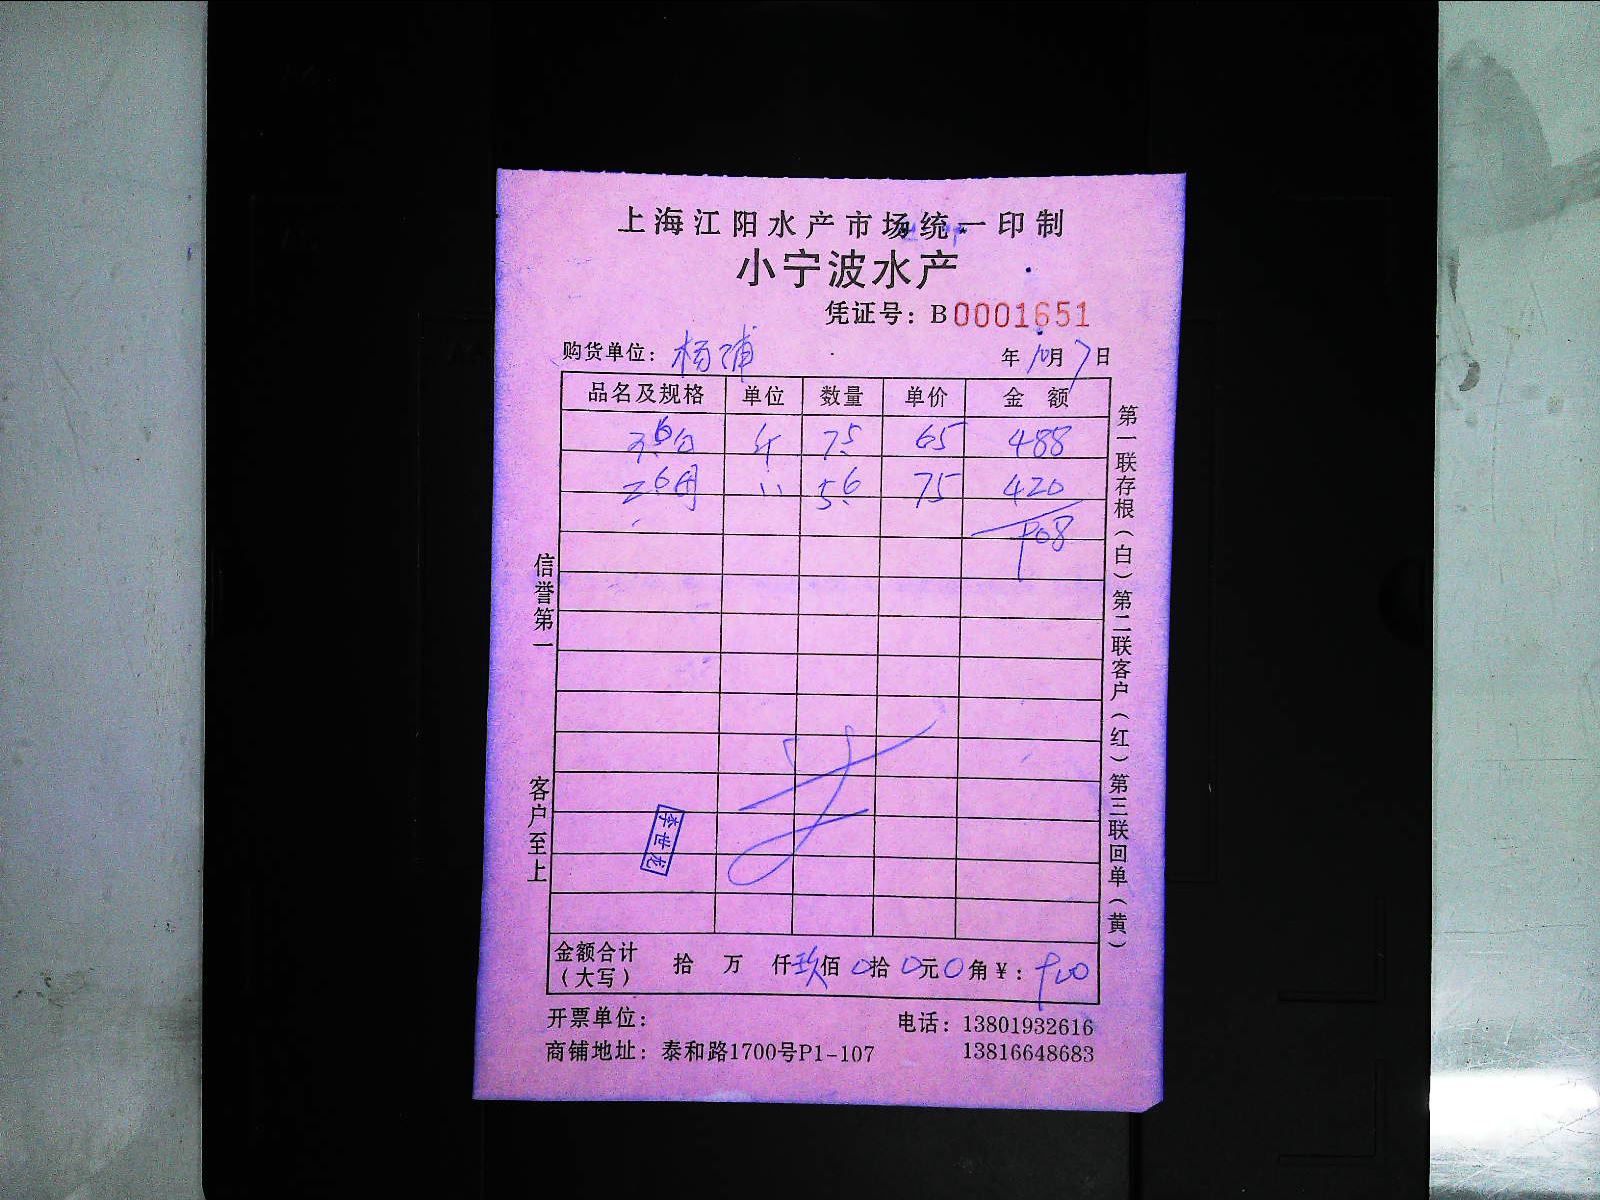 上海江阳水产市场统一印制
小宁波水产
凭证号：B0001651
购货单位：杨浦 年10月7日
品名及规格 单位 数量 单价 金额
斤 7.5 65 488
2.6母 〃 5.6 75 420
908
信誉第一
客户至上
第一联存根（白）第二联客户（红）第三联回单（黄）
李世龙
金额合计（大写） 拾 万 仟玖佰0拾0元0角￥：900
开票单位： 电话：13801932616
商铺地址：泰和路1700号P1-107 13816648683